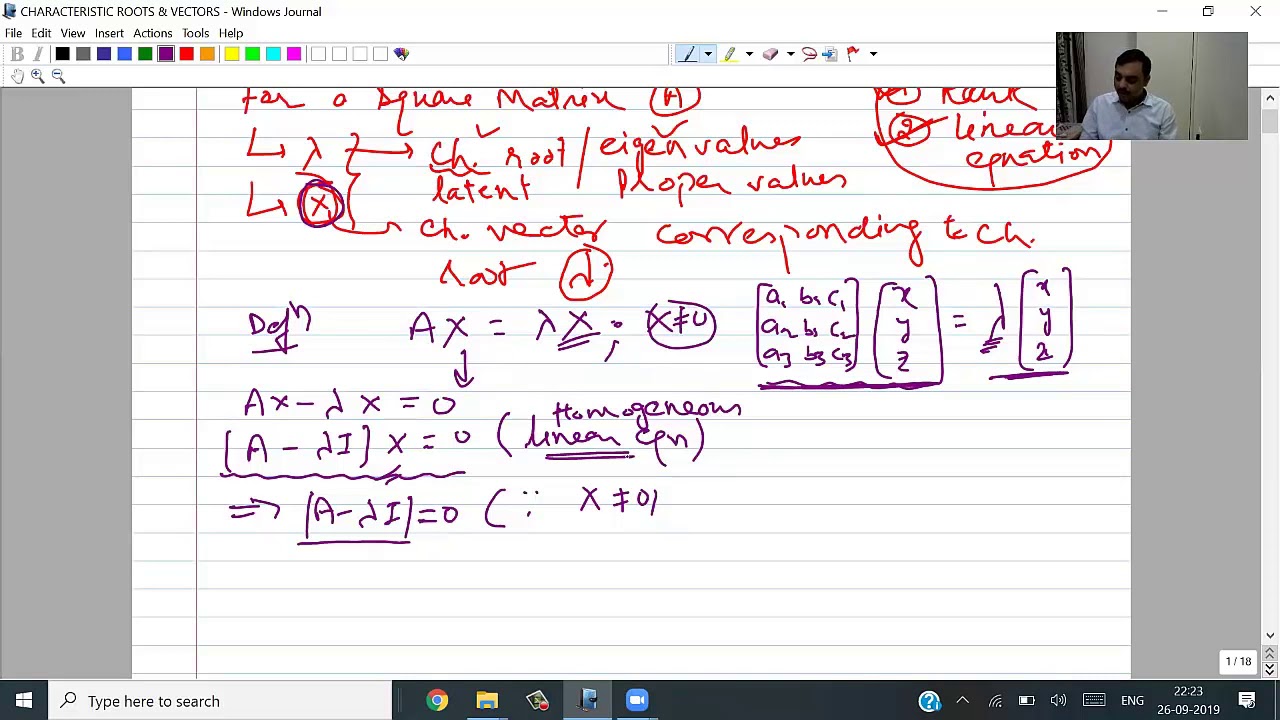 CHARACTERISTIC ROOTS & VECTORS - Windows Journal
File Edit View Insert Actions Tools Help
For a Square Matrix (A)
① Rank
② linear
equation
λ → ch. root / eigen values
latent / Proper values
X₁
ch. vector corresponding to ch.
root λ
Defⁿ AX = λX ; X≠0
[a₁ b₁ c₁
a₂ b₂ c₂
a₃ b₃ c₃] [x
y
z] = λ [x
y
z]
AX - λX = 0
[A - λI] X = 0 (Homogeneous
linear eqn)
⇒ |A - λI| = 0 (∵ X ≠ 0)
1 / 18
Type here to search
ENG
22:23
26-09-2019